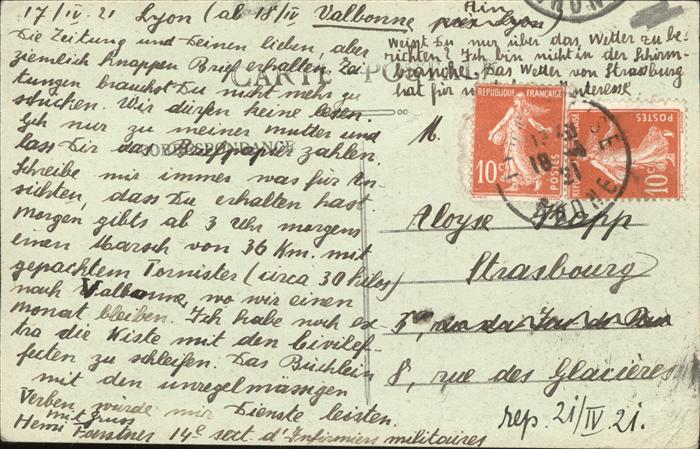 17/IV. 21 Lyon (ab 18/IV Valbonne Ain près Lyon)
Die Zeitung und Deinen lieben, aber
ziemlich knappen Brief erhalten. Zei-
tungen brauchst Du nicht mehr zu
schicken. Wir dürfen keine lesen.
Geh nur zu meiner Mutter und
lass Dir das zahlen.
Schreibe mir immer was für An-
sichten, dass Du erhalten hast.
Morgen gibts ab 3 Uhr morgens
einen Marsch von 36 Km. mit
gepacktem Tornister (circa 30 kilos)
nach Valbonne, wo wir einen
Monat bleiben. Ich habe noch ex-
tra die Kiste mit den Civilef-
fecten zu schleifen. Das Büchlein
mit den unregelmässigen
Verben würde mir Dienste leisten.
mit Gruss
Henri Foerstner 14e sect. d'Infirmiers militaires
Weisst Du nur über das Wetter zu be-
richten? Ich bin nicht in der Schirm-
branche. Das Wetter von Strasburg
hat für Interesse
CARTE POSTALE
CORRESPONDANCE
REPUBLIQUE FRANÇAISE
10c
POSTES
10c
POSTES
RHONE
M. Aloyse Happ
Strasbourg
8, rue des Glacières
rep. 21/IV 21.